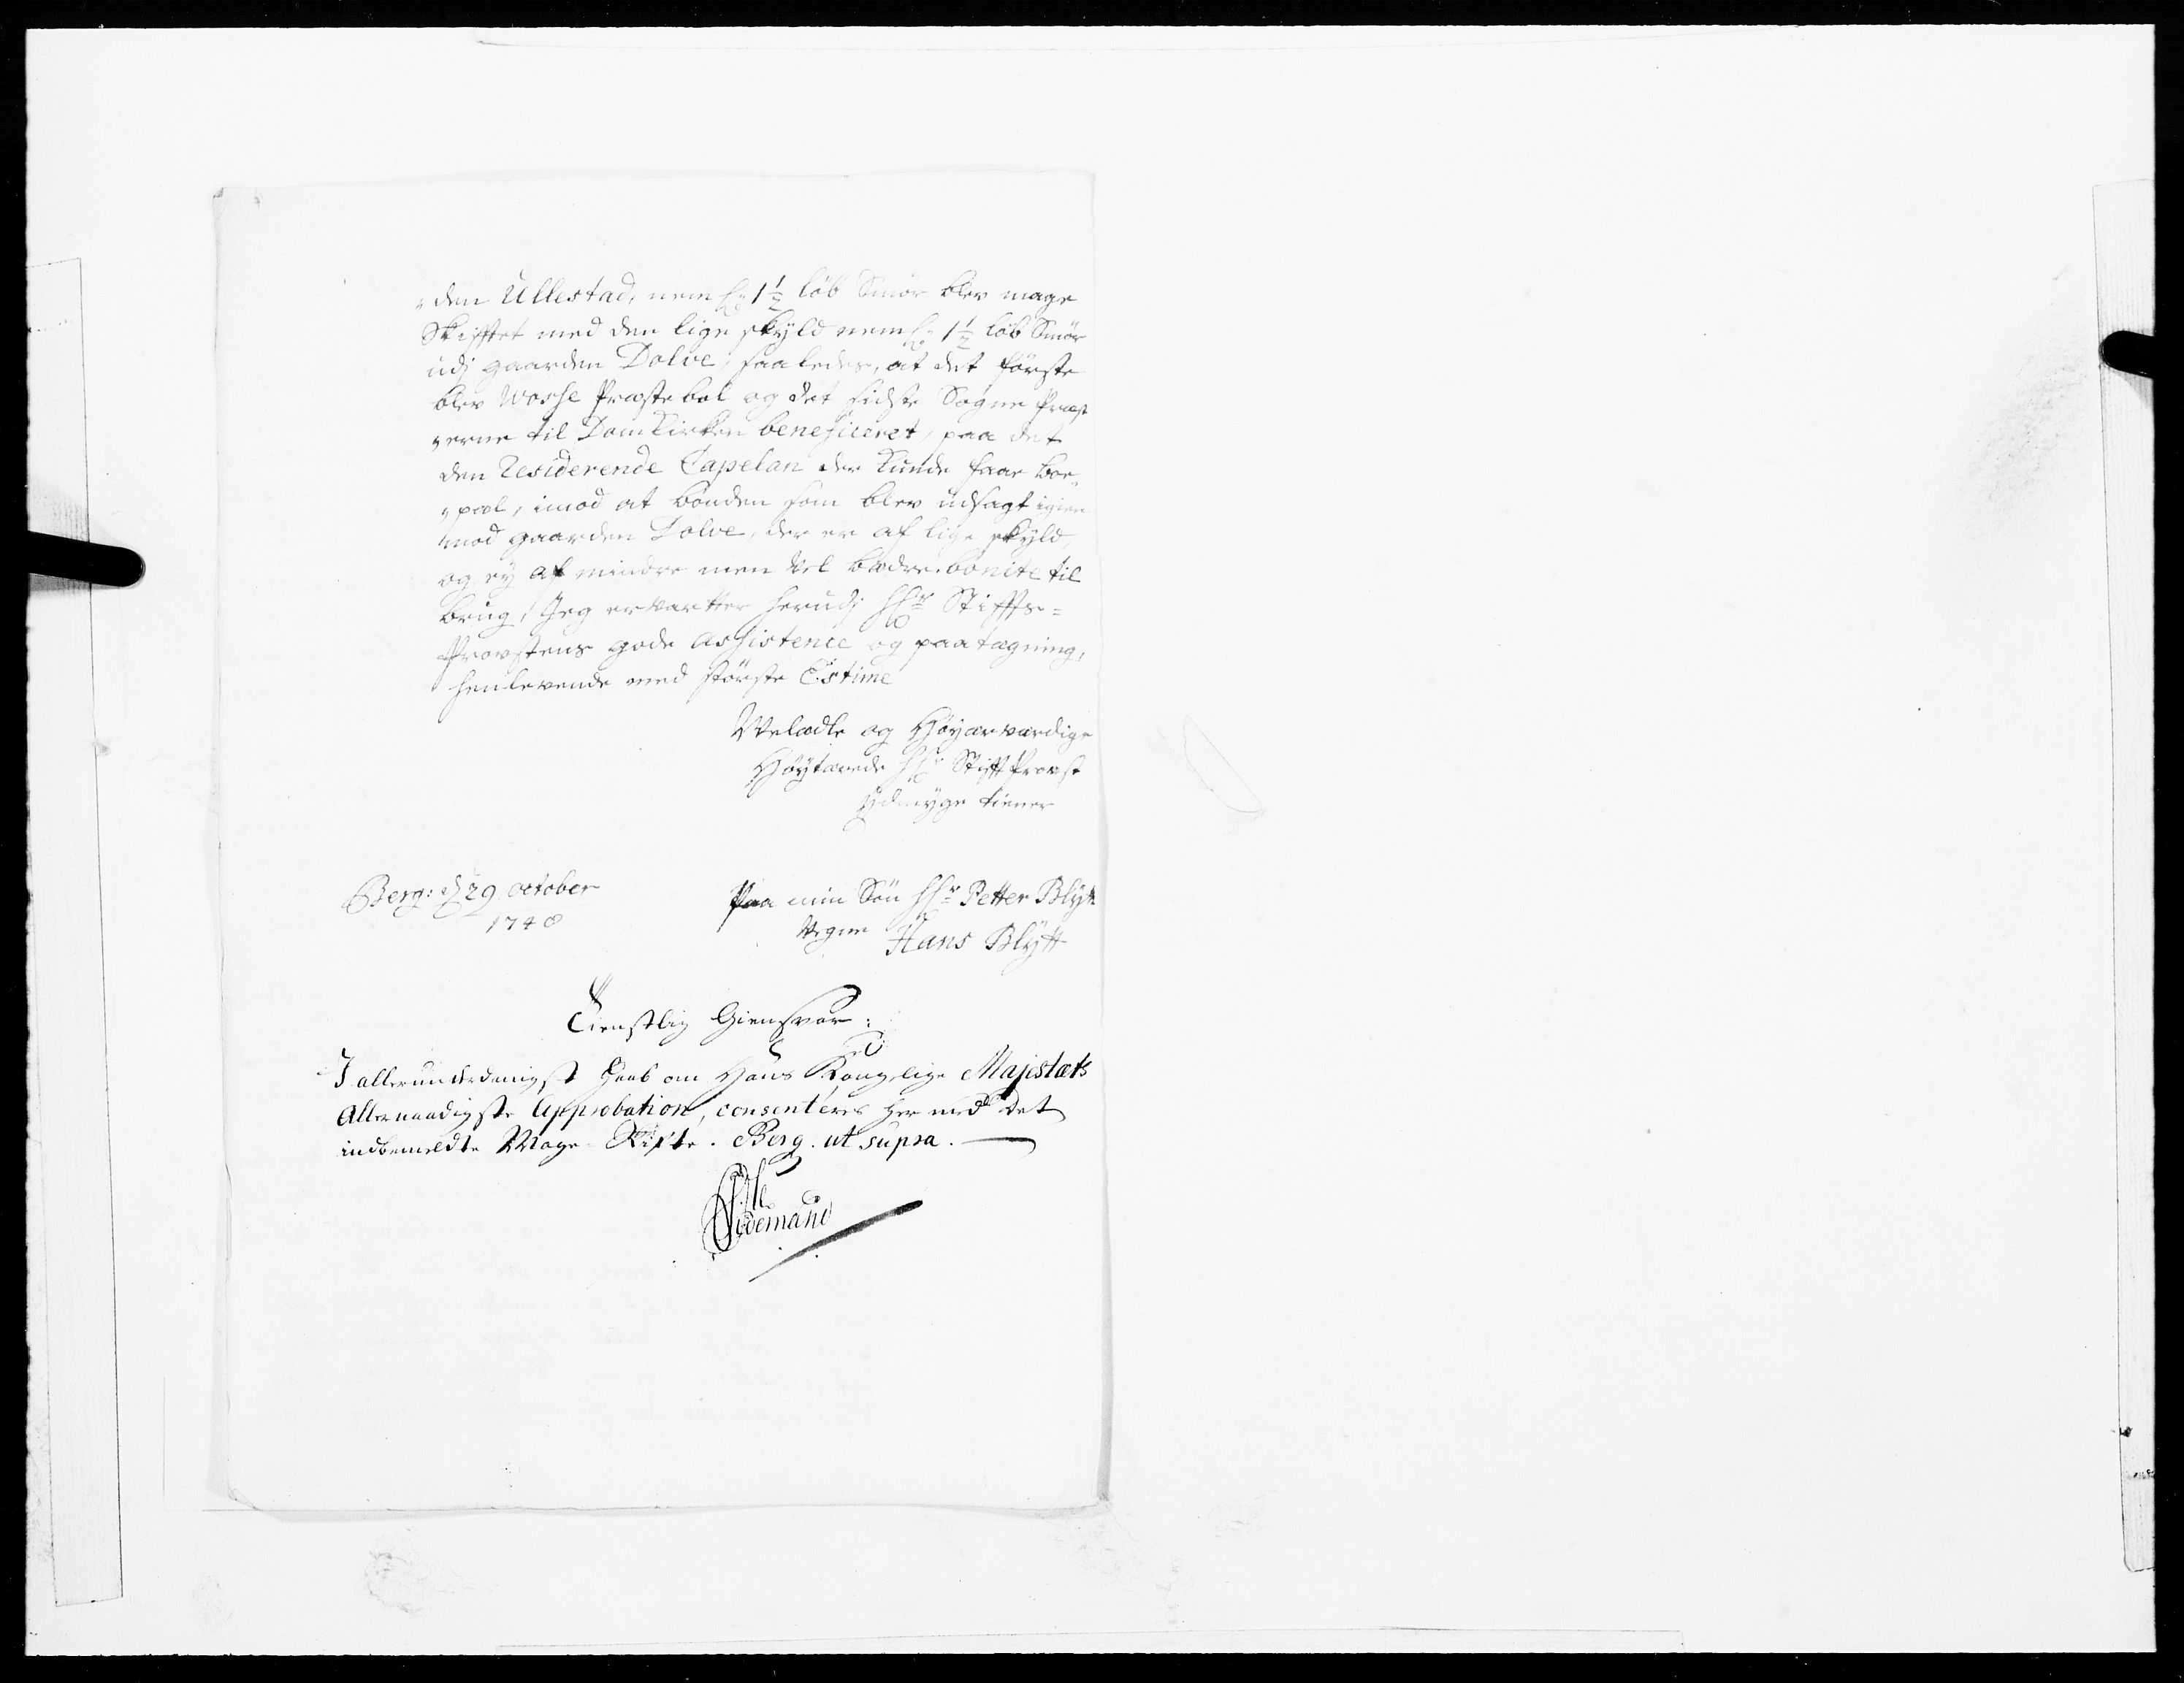 „den Ullestad, neml: 1 1/2 løb Smør blev mage
Skifftet med den lige skyld neml: 1 1/2 løb Smør
udj gaarden Dolve, saaledes, at det første
blev Wosse Præstebol og det sidste Sogne Præst
„erne til Domkirken beneficeret, paa det
den Residerende Capelan der kunde faae boe¬
„pæl, imod at bonden som blev udsagt igien
mod gaarden Dolve, der er af lige skyld,
og ey af mindre men vel bedre bonite til
brug, Jeg ervartter herudj Hr Stiffts=
Provstens gode assistence og paategning,
henlevende med største Estime
Velædle og Høyærværdige
Høytærede Hr Stifft Provst
Ydmyge tiener
Berg: d 29 october
1748
Paa min Søn Hr Petter Blÿtt
Vegne Hans Blÿtt
Tienstlig Giensvar:
I allerunderdanigst Haab om Hans Kongelige Majestæts
Allernaadigste Approbation, consenteres her med det
indbemeldte Mage-Skifte. Berg. ut supra.
Tidemand